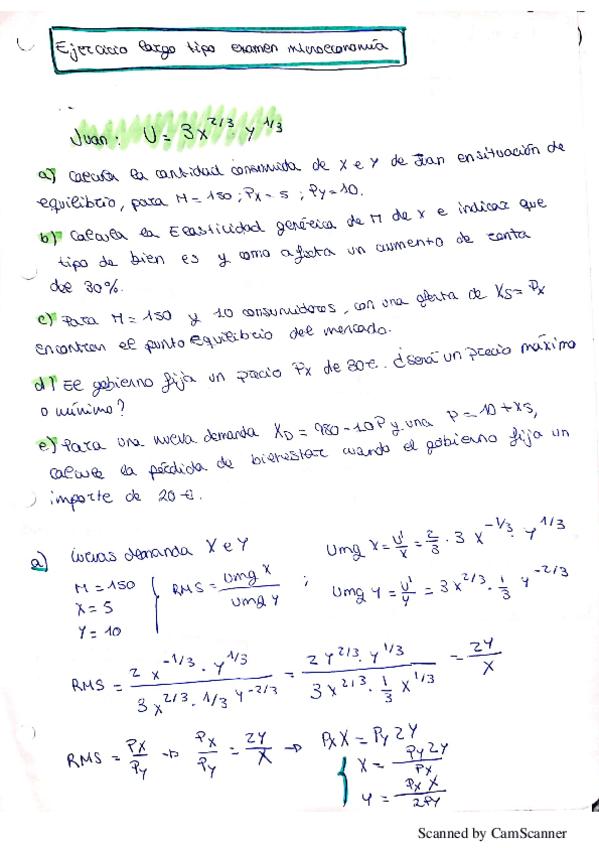 Ejercicio largo tipo examen microeconomía
Juan: U = 3x^2/3 · y^1/3
a) Calcula la cantidad consumida de X e Y de Juan en situación de
equilibrio, para M = 150; Px = 5; Py = 10.
b) Calcula la Elasticidad genérica de M de x e indicar que
tipo de bien es y como afecta un aumento de renta
del 30%.
c) Para M = 150 y 10 consumidores, con una oferta de Xs = Px
encontrar el punto equilibrio del mercado.
d) El gobierno fija un precio Px de 80€. ¿será un precio máximo
o mínimo?
e) Para una nueva demanda XD = 980 - 10P y una P = 10 + Xs,
calcule la pérdida de bienestar cuando el gobierno fija un
importe de 20€.
a) Curvas demanda X e Y
M = 150
X = 5
Y = 10
RMS = Umg X / Umg Y ;
Umg X = U'/X = 2/3 · 3 x^-1/3 · y^1/3
Umg Y = U'/Y = 3x^2/3 · 1/3 y^-2/3
RMS = 2 x^-1/3 · y^1/3 / 3 x^2/3 · 1/3 y^-2/3 = 2 y^2/3 · y^1/3 / 3 x^2/3 · 1/3 x^1/3 = 2Y / X
RMS = Px/Py → Px/Py = 2Y/X → PxX = Py2Y
X = Py2Y / Px
Y = Px X / 2Py
Scanned by CamScanner